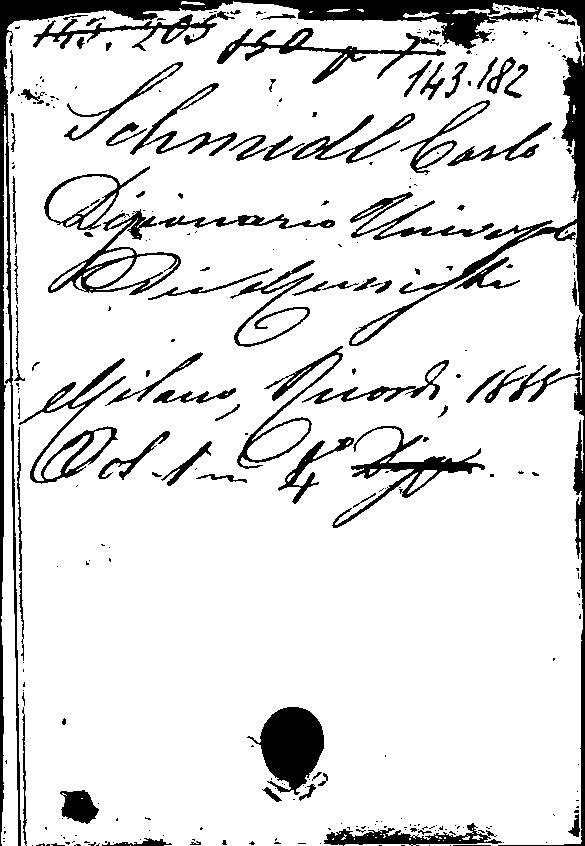 143. 205 150 p 7
143.182
Schmidl Carlo
Dizionario Universale
Dei Musicisti
Milano, Ricordi, 1888
Vol. 1 in 4°